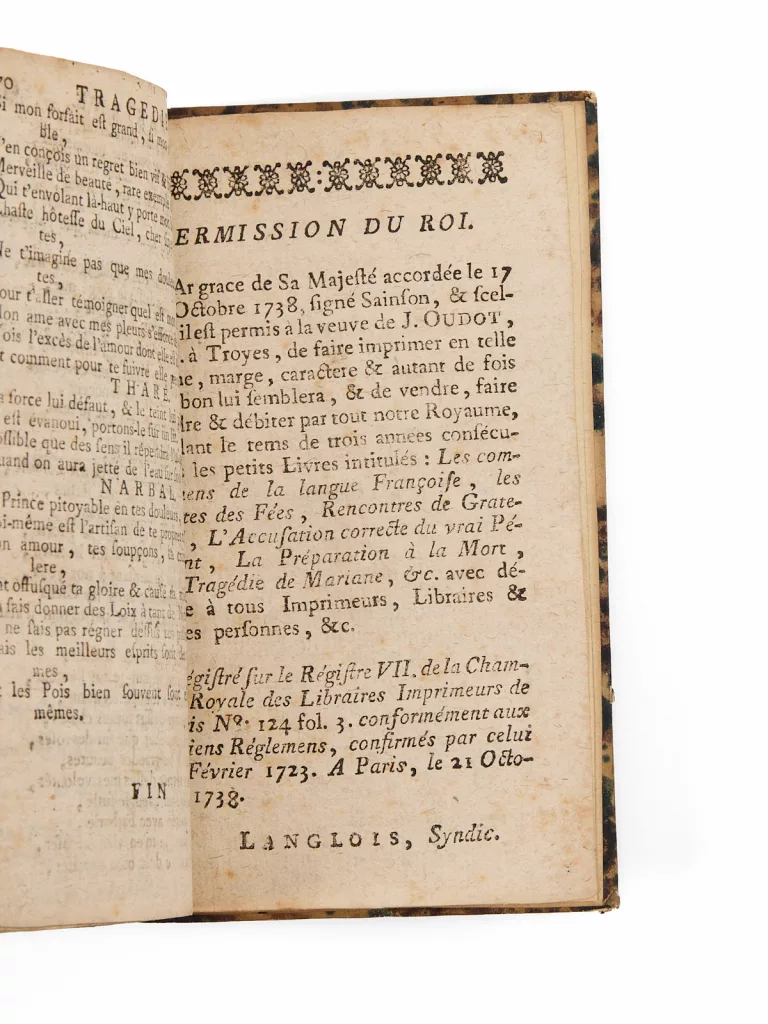 70 TRAGEDI
Si mon forfait est grand, si mon
ble,
J'en conçois un regret bien vif &
Merveille de beauté, rare exemple
Qui t'envolant là-haut y porte mes
Chaste hôtesse du Ciel, cher
tes,
Ne t'imagine pas que mes doule
tes,
Pour t'aller témoigner quel est
Mon ame avec mes pleurs s'efforce
Vois l'excès de l'amour dont elle est
Et comment pour te suivre elle
THARÉ.
La force lui défaut, & le teint lui
est évanoui, portons-le sur un lit,
possible que des sens il répren
quand on aura jetté de l'eau sur
NARBAL
Prince pitoyable en tes douleurs,
oi-même est l'artisan de te propres
on amour, tes soupçons, ta
lere,
nt offusqué ta gloire & causé
fais donner des Loix à tant de
ne sais pas régner dessus
ais les meilleurs esprits sont de
mes,
t les Pois bien souvent sont
mêmes.
FIN
ERMISSION DU ROI.
Ar grace de Sa Majesté accordée le 17
Octobre 1738, signé Sainson, & scel-
il est permis à la veuve de J. OUDOT,
. à Troyes, de faire imprimer en telle
ne, marge, caractere & autant de fois
bon lui semblera, & de vendre, faire
dre & débiter par tout notre Royaume,
dant le tems de trois années consécu-
les petits Livres intitulés : Les com-
iens de la langue Françoise, les
tes des Fées, Rencontres de Grate-
, L'Accusation correcte du vrai Pé-
nt, La Préparation à la Mort,
Tragédie de Mariane, &c. avec dé-
e à tous Imprimeurs, Libraires &
es personnes, &c.
égistré sur le Régistre VII. de la Cham-
Royale des Libraires Imprimeurs de
is No. 124 fol. 3. conformément aux
iens Réglemens, confirmés par celui
Février 1723. A Paris, le 21 Octo-
1738.
LANGLOIS, Syndic.